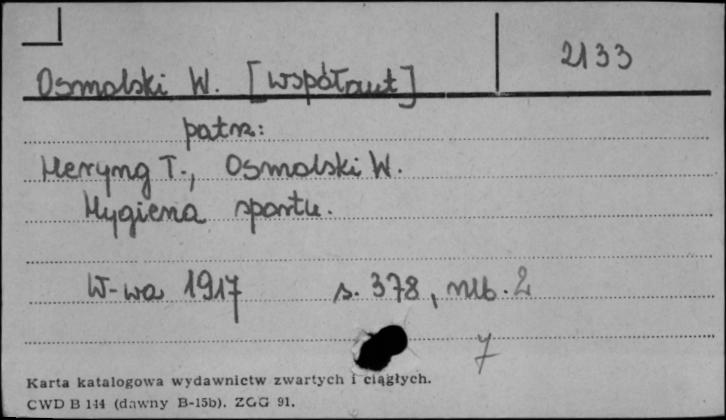 2133
Osmolski W. [współaut]
patrz:
Heryng T., Osmolski W.
Hygiena sportu.
W-wa 1917 s. 378, nlb. 2
7
Karta katalogowa wydawnictw zwartych i ciągłych.
CWD B 144 (dawny B-15b). ZGG 91.